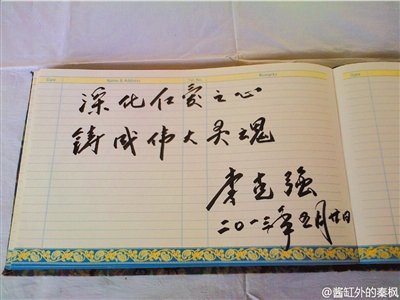 Date Name & Address Tel No. Remarks Date
深化仁愛之心
铸成伟大灵魂
李克强
二〇一三年五月廿日
@酱缸外的秦枫